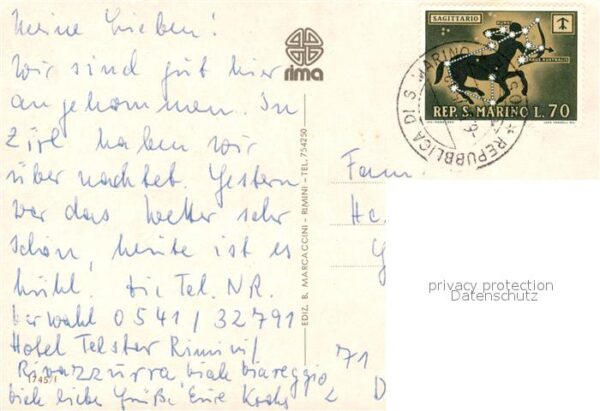 Meine Lieben!
Wir sind gut hier
angekommen. In
Zirl haben wir
übernachtet. Gestern
war das Wetter sehr
schön, heute ist es
kühl. Die Tel. NR.
Vorwahl 0541/32791
Hotel Telster Rimini/
Rivazzurra, viale biareggio 71
viele liebe Grüße, Eure
1745/1
rima
EDIZ. B. MARCACCINI - RIMINI - TEL. 754250
SAGITTARIO
REP. S. MARINO L. 70
REPUBBLICA DI S. MARINO
Fam.
privacy protection
Datenschutz